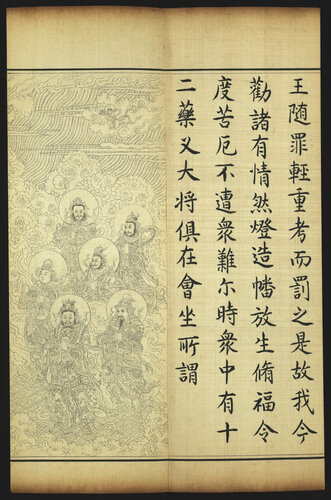 王随罪輕重考而罰之是故我今
勸諸有情然燈造幡放生脩福令
度苦厄不遭衆難尓時衆中有十
二藥叉大将俱在會坐所謂